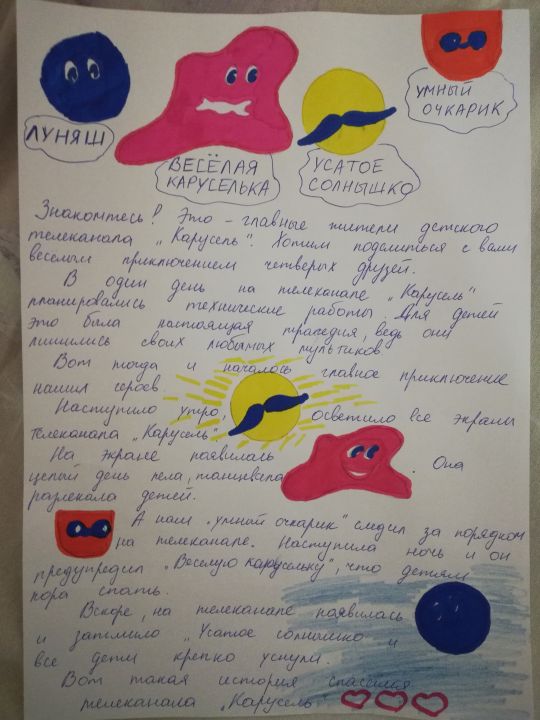 ЛУНЯШ
ВЕСЁЛАЯ
КАРУСЕЛЬКА
УСАТОЕ
СОЛНЫШКО
УМНЫЙ
ОЧКАРИК
Знакомтесь! Это – главные жители детского
телеканала „Карусель". Хотим поделиться с вами
веселым приключением четверых друзей.
В один день на телеканале „Карусель"
планировались технические работы. Для детей
это была настоящая трагедия, ведь они
лишились своих любимых мультиков.
Вот тогда и началось главное приключение
наших героев.
Наступило утро, осветило все экраны
телеканала „Карусель".
На экране появилась . Она
целый день пела, танцевала
развлекала детей.
А наш „умный очкарик" следил за порядком
на телеканале. Наступила ночь и он
предупредил „Веселую карусельку", что детям
пора спать.
Вскоре, на телеканале появилась
и затмило „Усатое солнышко и
все дети крепко уснули.
Вот такая история спасения
телеканала „Карусель"